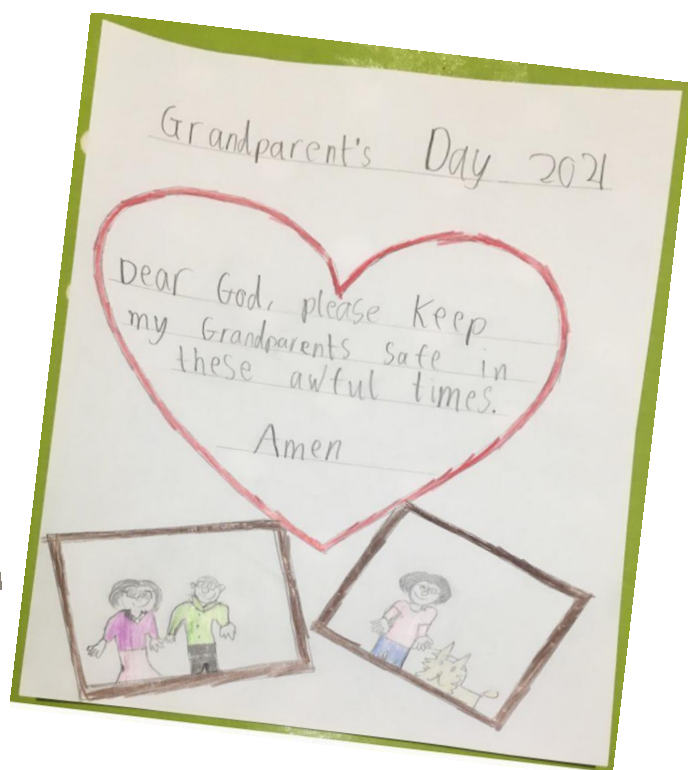 Grandparent's Day 2021
Dear God, please keep
my Grandparents safe in
these awful times.
Amen